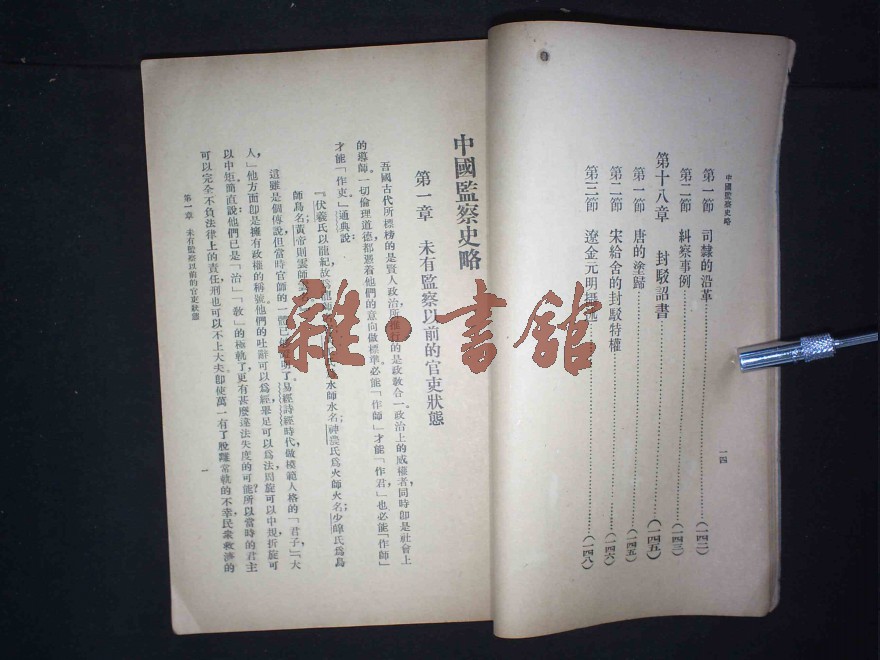 中國監察史略
第一節　司隸的沿革……(一四二)
第二節　糾察事例……(一四三)
第十八章　封駁詔書……(一四五)
第一節　唐的塗歸……(一四五)
第二節　宋給舍的封駁特權……(一四六)
第三節　遼金元明……(一四八)
一四
中國監察史略
第一章　未有監察以前的官吏狀態
吾國古代所標榜的是賢人政治所推行的是政教合一。政治上的威權者，同時卽是社會上
的導師。一切倫理道德都憑着他們的意向做標準必能「作師」才能「作君」也必能「作師」
才能「作吏」通典說：
『伏羲氏以龍紀故爲龍師水師水名；神農氏爲火師火名；少皞氏爲鳥
師鳥名；黃帝則雲師
這雖是個傳說但當時官師的一體已明了易經詩經時代做模範人格的「君子」「大
人」他方面卽是擁有政權的稱號他們的吐辭可以爲經舉足可以爲法周旋可以中規折旋可
以中矩簡直說他們已是「治」「教」的極軌了更有甚麼違法失度的可能所以當時的君主
可以完全不負法律上的責任刑也可以不上大夫卽使萬一有了脫離常軌的不幸民衆救濟的
第一章　未有監察以前的官吏狀態
一
雜·書館